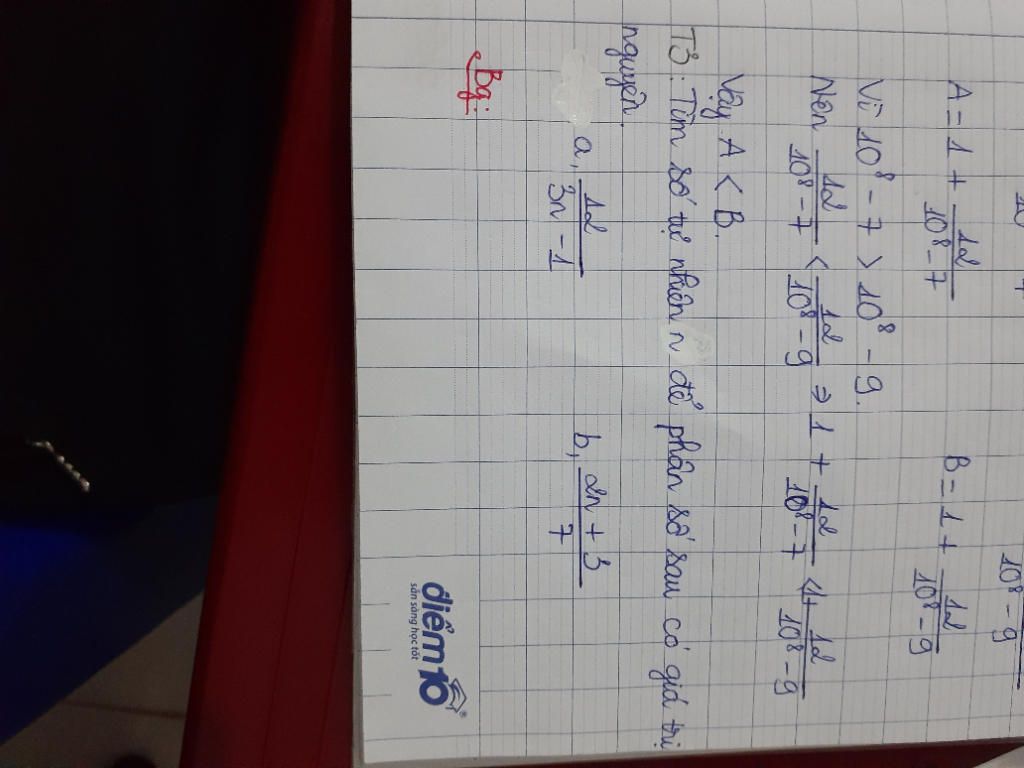 10⁸ - 9
A = 1 + 12/(10⁸ - 7) B = 1 + 12/(10⁸ - 9)
Vì 10⁸ - 7 > 10⁸ - 9.
Nên 12/(10⁸ - 7) < 12/(10⁸ - 9) ⇒ 1 + 12/(10⁸ - 7) < 1 + 12/(10⁸ - 9)
Vậy A < B.
T3: Tìm số tự nhiên n để phân số sau có giá trị
nguyên.
a, 12/(3n - 1) b, (2n + 3)/7
Bg:
điểm10®
sẵn sàng học tốt